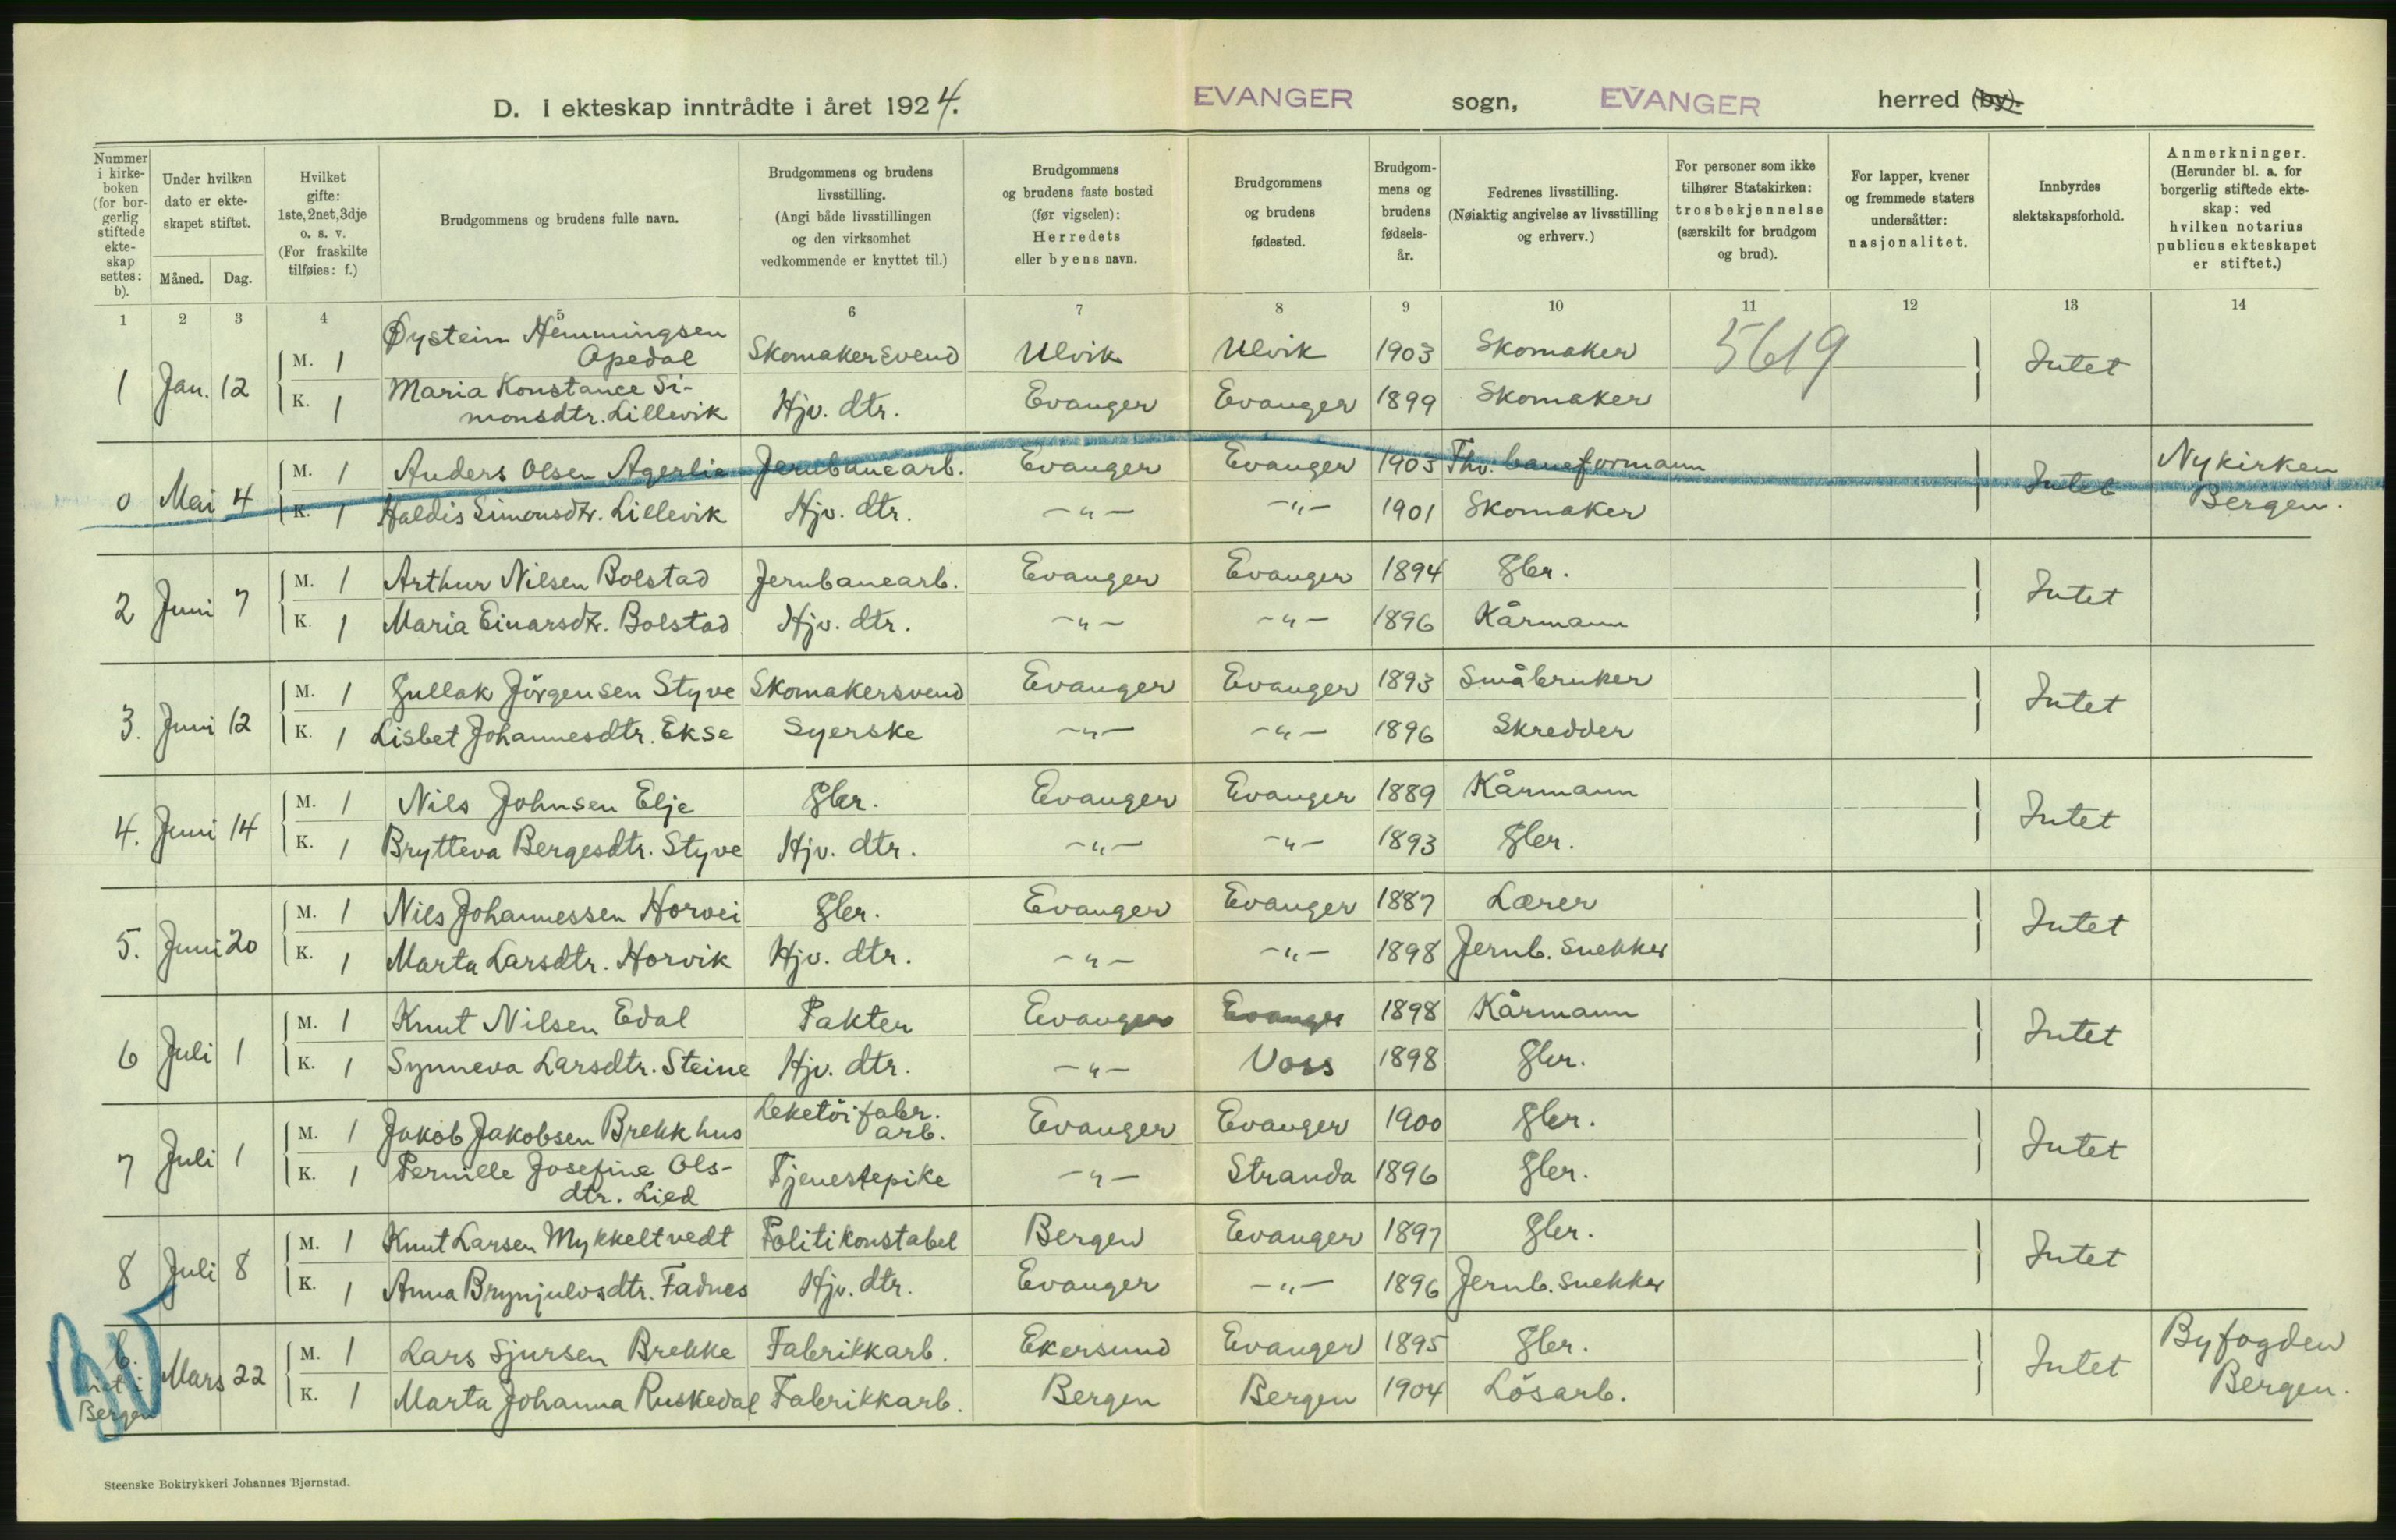 D. I ekteskap inntrådte i året 1924. EVANGER sogn, EVANGER herred (by).
Nummer i kirke-boken (for bor-gerlig stiftede ekte-skap settes: b).
Under hvilken dato er ekte-skapet stiftet.
Måned. Dag.
Hvilket gifte: 1ste, 2net, 3dje o. s. v. (For fraskilte tilføies: f.)
Brudgommens og brudens fulle navn.
Brudgommens og brudens livsstilling. (Angi både livsstillingen og den virksomhet vedkommende er knyttet til.)
Brudgommens og brudens faste bosted (før vigselen): Herredets eller byens navn.
Brudgommens og brudens fødested.
Brudgom-mens og brudens fødsels-år.
Fedrenes livsstilling. (Nøiaktig angivelse av livsstilling og erhverv.)
For personer som ikke tilhører Statskirken: trosbekjennelse (særskilt for brudgom og brud).
For lapper, kvener og fremmede staters undersåtter: nasjonalitet.
Innbyrdes slektskapsforhold.
Anmerkninger. (Herunder bl. a. for borgerlig stiftede ekte-skap: ved hvilken notarius publicus ekteskapet er stiftet.)
1 2 3 4 5 6 7 8 9 10 11 12 13 14
1 Jan. 12 M. 1 Øystein Hemmingsen Opedal Skomakersvend Ulvik Ulvik 1903 Skomaker 5619 Intet
K. 1 Maria Konstance Si-monsdtr. Lillevik Hjv. dtr. Evanger Evanger 1899 Skomaker
0 Mai 4 M. 1 Anders Olsen Agerlie Jernbanearb. Evanger Evanger 1903 Fhv. baneformann Intet Nykirken
K. 1 Haldis Simonsdtr. Lillevik Hjv. dtr. -"- -"- 1901 Skomaker Bergen.
2 Juni 7 M. 1 Arthur Nilsen Bolstad Jernbanearb. Evanger Evanger 1894 Gbr. Intet
K. 1 Maria Einarsdtr. Bolstad Hjv. dtr. -"- -"- 1896 Kårmann
3. Juni 12 M. 1 Gullak Jörgensen Styve Skomakersvend Evanger Evanger 1893 Småbruker Intet
K. 1 Lisbet Johannesdtr. Ekse Syerske -"- -"- 1896 Skredder
4. Juni 14 M. 1 Nils Johnsen Elje Gbr. Evanger Evanger 1889 Kårmann Intet
K. 1 Brytteva Bergesdtr. Styve Hjv. dtr. -"- -"- 1893 Gbr.
5. Juni 20 M. 1 Nils Johannessen Horvei Gbr. Evanger Evanger 1887 Lærer Intet
K. 1 Marta Larsdtr. Horvik Hjv. dtr. -"- -"- 1898 Jernb. snekker
6 Juli 1 M. 1 Knut Nilsen Edal Pakter Evanger Evanger 1898 Kårmann Intet
K. 1 Synneva Larsdtr. Steine Hjv. dtr. -"- Voss 1898 Gbr.
7 Juli 1 M. 1 Jakob Jakobsen Brekkhus Leketöifabr. arb. Evanger Evanger 1900 Gbr. Intet
K. 1 Pernille Josefine Ols-dtr. Lied Tjenestepike -"- Stranda 1896 Gbr.
8 Juli 8 M. 1 Knut Larsen Mykkeltvedt Politikonstabel Bergen Evanger 1897 Gbr. Intet
K. 1 Anna Brynjulvsdtr. Fadnes Hjv. dtr. Evanger -"- 1896 Jernb. snekker
b. Bergen Mars 22 M. 1 Lars Sjursen Brekke Fabrikkarb. Ekersund Evanger 1895 Gbr. Intet Byfogden
K. 1 Marta Johanna Ruskedal Fabrikkarb. Bergen Bergen 1904 Lösarb. Bergen.
Steenske Boktrykkeri Johannes Bjørnstad.